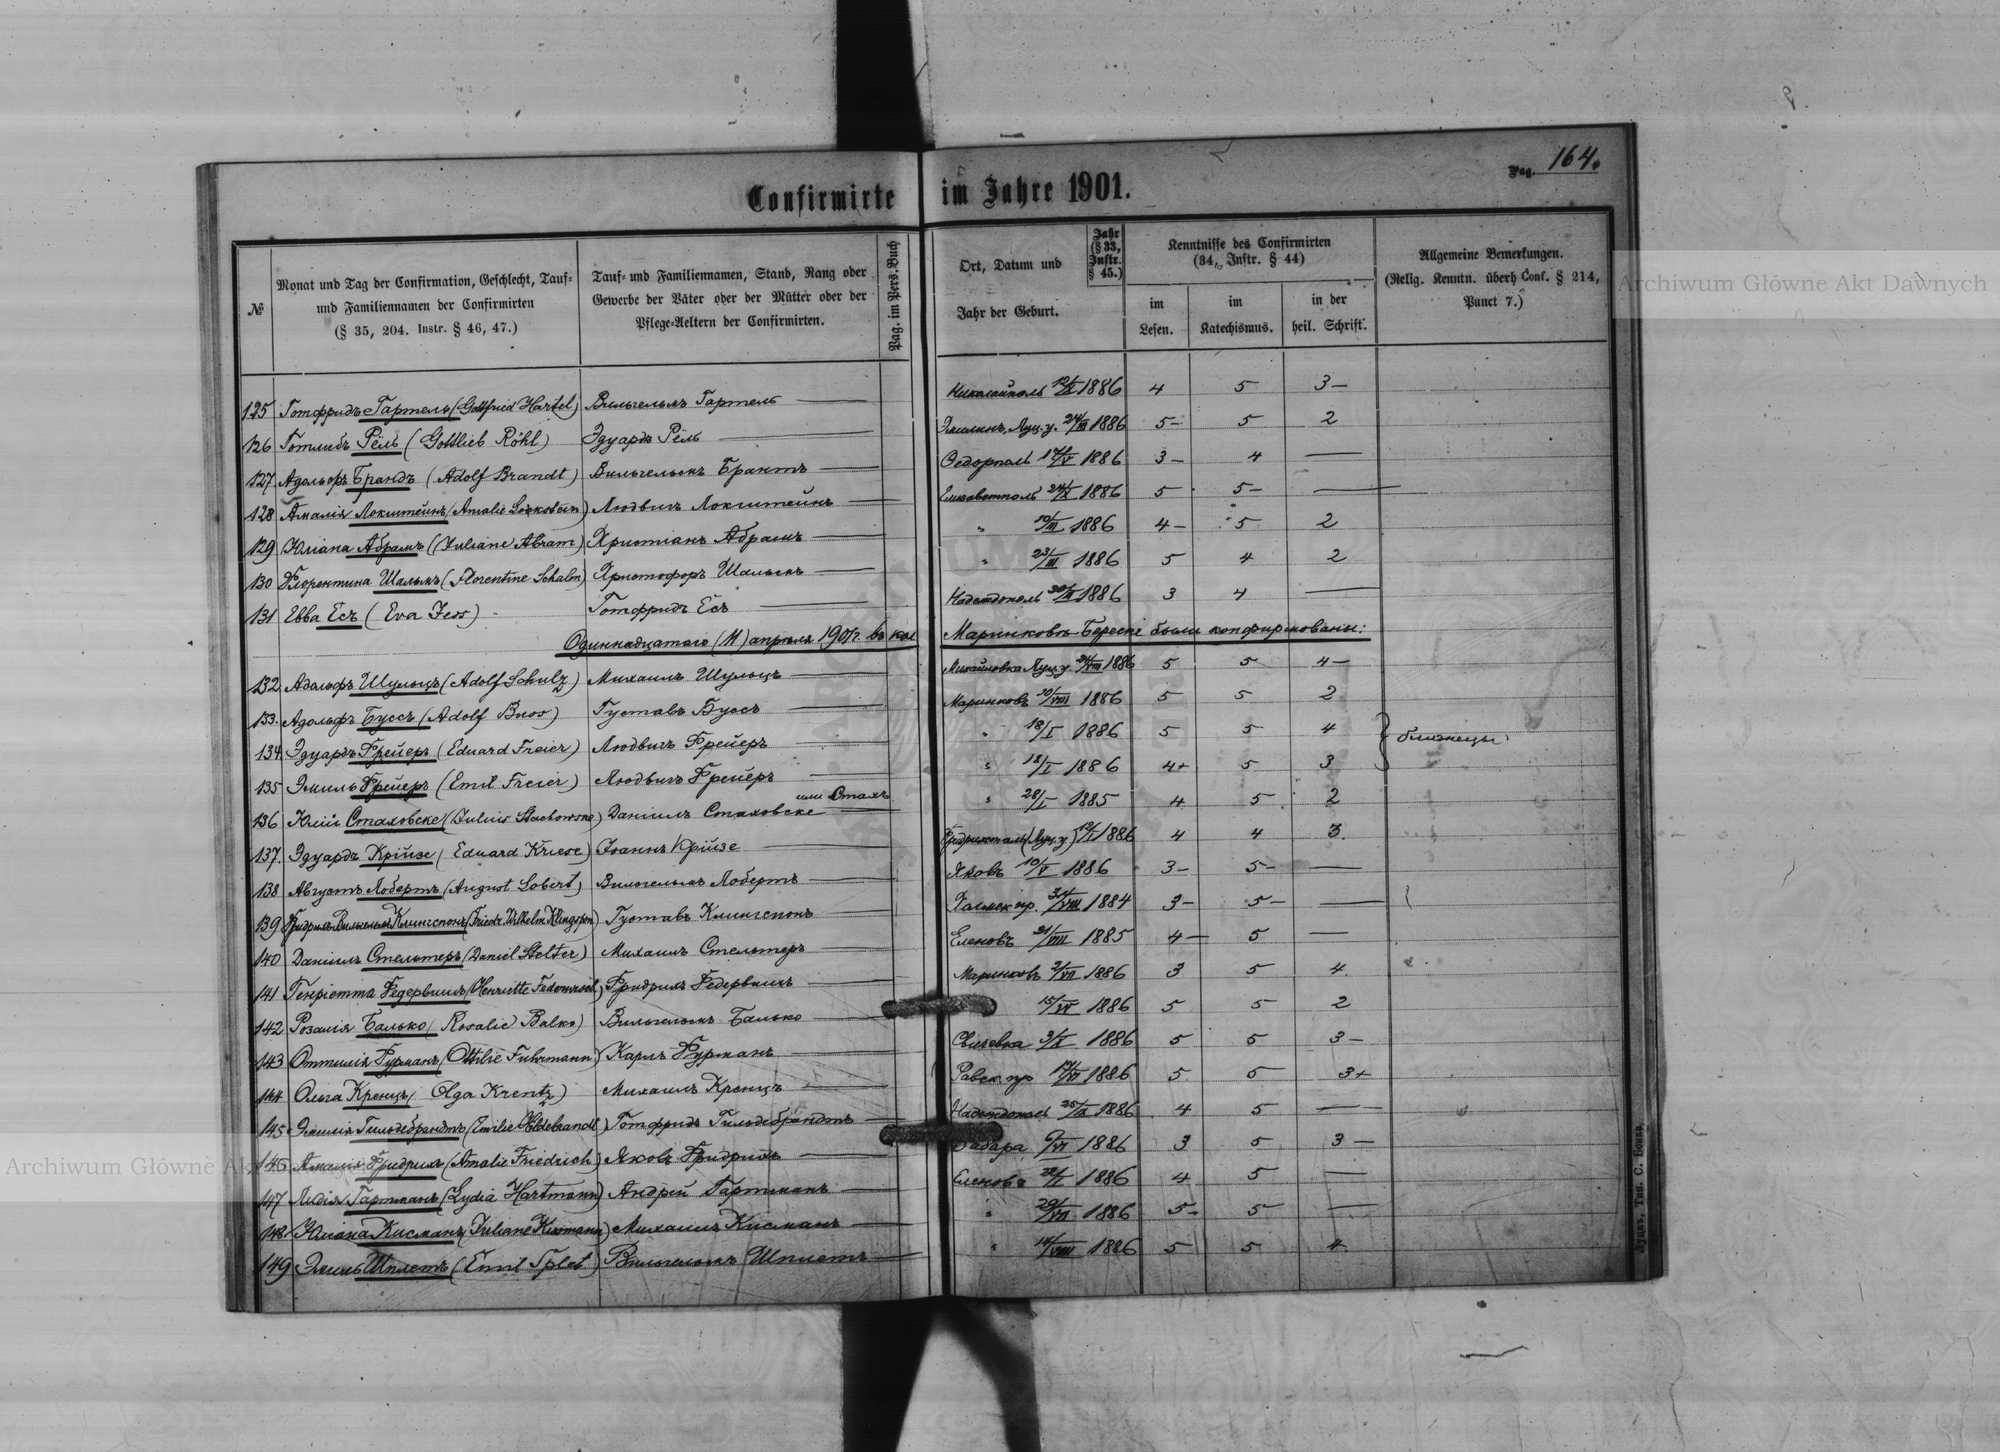 Pag. 164.
Confirmirte im Jahre 1901.
№
Monat und Tag der Confirmation, Geschlecht, Tauf-
und Familiennamen der Confirmirten
(§ 35, 204. Instr. § 46, 47.)
Tauf- und Familiennamen, Stand, Rang oder
Gewerbe der Väter oder der Mütter oder der
Pflege-Aeltern der Confirmirten.
Pag. im Pers. Buch
Ort, Datum und
Jahr der Geburt.
Jahr
(§ 33,
Instr.
§ 45.)
Kenntnisse des Confirmirten
(34, Instr. § 44)
im
Lesen.
im
Katechismus.
in der
heil. Schrift.
Allgemeine Bemerkungen.
(Relig. Kenntn. überh Conf. § 214,
Punct 7.)
125 Готфридъ Гартель (Gottfried Hartel) Вильгельмъ Гартель — Николайполь 12/X 1886 4 5 3–
126 Готлибъ Рёль (Gottlieb Röhl) Эдуардъ Рёль — Эмилин. Луц. у. 1886 5– 5 2
127 Адольфъ Брандъ (Adolf Brandt) Вильгельмъ Брантъ — Федорполь 17/V 1886 3– 4 —
128 Амалія Локштейнъ (Amalie) Людвигъ Локштейнъ — Елизаветполь 24/X 1886 5 5– —
129 Юліана Абрамъ (Juliane Abram) Христіанъ Абрамъ — " 10/III 1886 4– 5 2
130 Флорентина Шальмъ (Florentine Schalm) Христофоръ Шальмъ — " 23/III 1886 5 4 2
131 Евва Есъ (Eva Jess) Готфридъ Есъ — 1886 3 4 —
Одиннадцатаго (11) апрѣля 1901 г. въ кол Маринковъ-Береске были конфирмованы:
132. Адольфъ Шульцъ (Adolf Schulz) Михаилъ Шульцъ — Михайловка Луц. у. 1886 5 5 4–
133. Адольфъ Буссъ (Adolf Buss) Густавъ Буссъ — Маринковъ 20/VIII 1886 5 5 2
134. Эдуардъ Фрейеръ (Eduard Freier) Людвигъ Фрейеръ — " 18/I 1886 5 5 4 } близнецы
135 Эмиль Фрейеръ (Emil Freier) Людвигъ Фрейеръ — " 18/I 1886 4+ 5 3
или Стахъ
136 Юлій Стаховске (Julius Stachowske) Даніилъ Стаховске " 28/I 1885 4 5 2
137. Эдуардъ Крійзе (Eduard Kriese) Іоаннъ Крійзе — (Луц. у) 1886 4 4 3.
138 Августъ Лобертъ (August Lobert) Вильгельмъ Лобертъ — Яковъ 10/V 1886 3– 5– —
139 Фридрихъ Вильгельмъ Клингспонъ (Friedr. Wilhelm Klingspon) Густавъ Клингспонъ — 31/VIII 1884 3– 5– —
140 Даніилъ Стельтеръ (Daniel Stelter) Михаилъ Стельтеръ — Еленовъ 31/VIII 1885 4– 5 —
141 Генріетта Федервишъ (Henriette) Фридрихъ Федервишъ — Маринковъ 1886 3 5 4
142 Розалія Балько (Rosalie Balko) Вильгельмъ Балько — 1886 5 5 2
143 Оттилія Фурманъ (Ottilie Fuhrmann) Карлъ Фурманъ — 3/X 1886 5 5 3–
144 Ольга Кренцъ (Olga Krentz) Михаилъ Кренцъ — 1886 5 5 3+
145 Эмилія Гильдебрандтъ (Emilie Hildebrandt) Готфридъ Гильдебрандтъ — 25/IX 1886 4 5 —
146 Амалія Фридрихъ (Amalie Friedrich) Яковъ Фридрихъ — 6/VI 1886 3 5 3–
147 Лидія Гартманъ (Lydia Hartmann) Андрей Гартманъ — 1886 4 5 —
148 Юліана Кисманъ (Juliane Kissmann) Михаилъ Кисманъ — " 1886 5– 5 —
149 Эмиль Шплетъ (Emil Splet) Вильгельмъ Шплетъ — " 14/VIII 1886 5 5 4
Луцкъ, Тип. С. Бонка
Archiwum Główne Akt Dawnych
Archiwum Główne Akt Dawnych